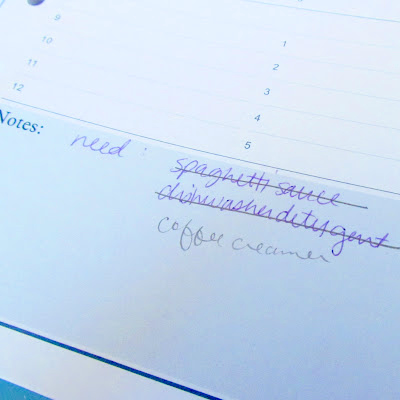 9
10
11
12
1
2
3
4
5
Notes:
need : spaghetti sauce
dishwasher detergent
coffee creamer